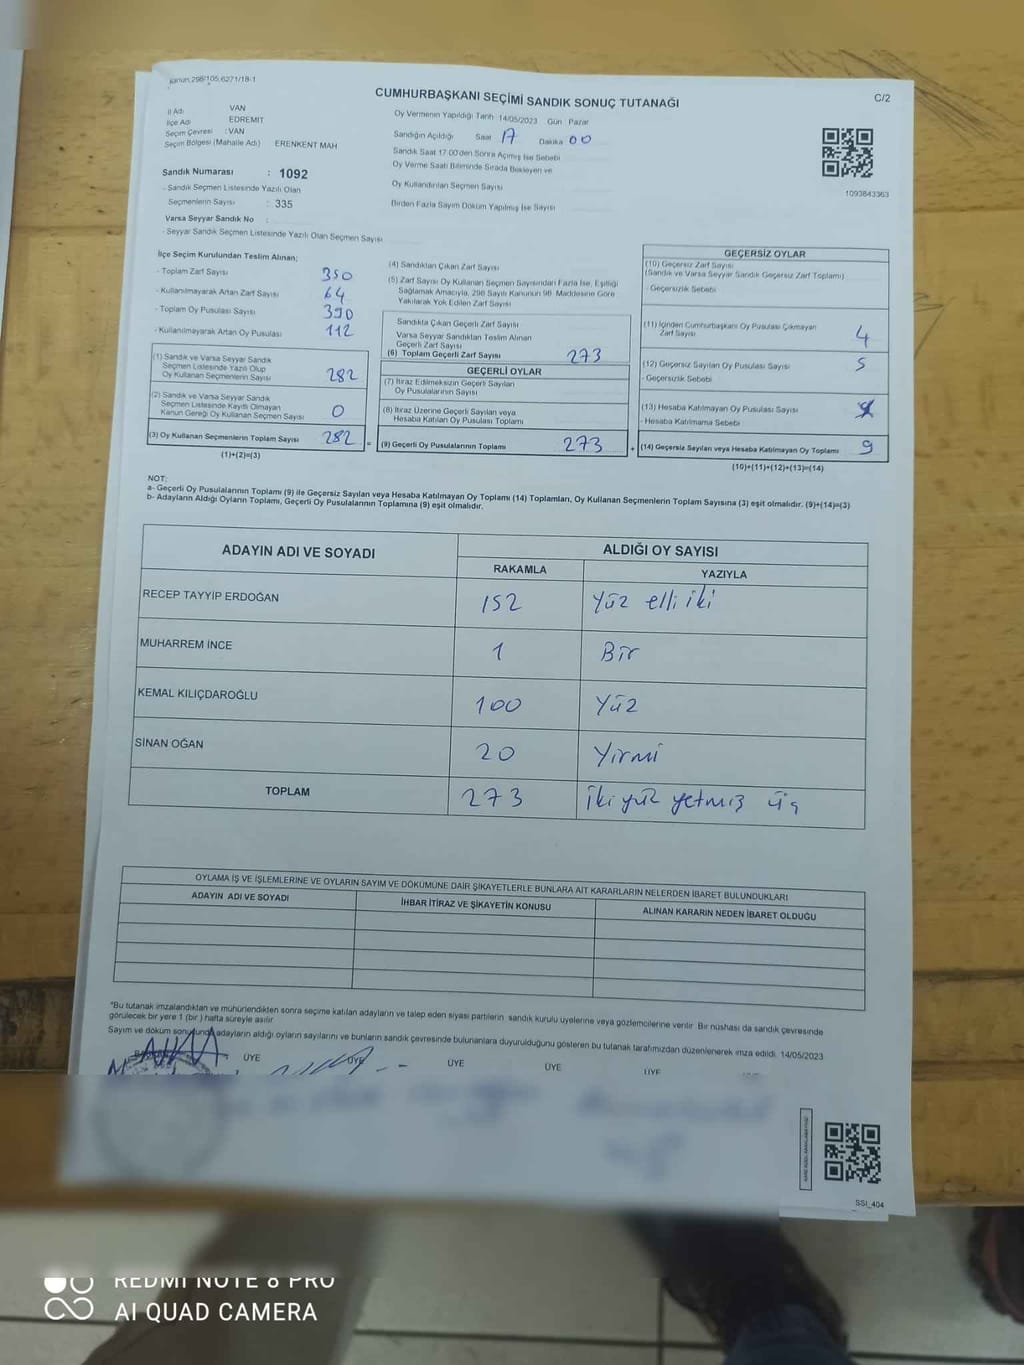 Kanun;298/105;6271/18-1
CUMHURBAŞKANI SEÇİMİ SANDIK SONUÇ TUTANAĞI
C/2
İl Adı VAN
İlçe Adı EDREMIT
Seçim Çevresi : VAN
Seçim Bölgesi (Mahalle Adı) ERENKENT MAH
Sandık Numarası : 1092
- Sandık Seçmen Listesinde Yazılı Olan
Seçmenlerin Sayısı : 335
Varsa Seyyar Sandık No :
- Seyyar Sandık Seçmen Listesinde Yazılı Olan Seçmen Sayısı
Oy Vermenin Yapıldığı Tarih 14/05/2023 Gün Pazar
Sandığın Açıldığı Saat 17 Dakika 00
Sandık Saat 17.00'den Sonra Açılmış İse Sebebi
Oy Verme Saati Bitiminde Sırada Bekleyen ve
Oy Kullandırılan Seçmen Sayısı
Birden Fazla Sayım Döküm Yapılmış İse Sayısı
1093843363
İlçe Seçim Kurulundan Teslim Alınan;
- Toplam Zarf Sayısı 350
- Kullanılmayarak Artan Zarf Sayısı 64
- Toplam Oy Pusulası Sayısı 390
- Kullanılmayarak Artan Oy Pusulası 112
(1) Sandık ve Varsa Seyyar Sandık
Seçmen Listesinde Yazılı Olup
Oy Kullanan Seçmenlerin Sayısı 282
(2) Sandık ve Varsa Seyyar Sandık
Seçmen Listesinde Kayıtlı Olmayan
Kanun Gereği Oy Kullanan Seçmen Sayısı 0
(3) Oy Kullanan Seçmenlerin Toplam Sayısı 282 =
(1)+(2)=(3)
(4) Sandıktan Çıkan Zarf Sayısı
(5) Zarf Sayısı Oy Kullanan Seçmen Sayısından Fazla İse, Eşitliği
Sağlamak Amacıyla, 298 Sayılı Kanunun 98. Maddesine Göre
Yakılarak Yok Edilen Zarf Sayısı
Sandıkta Çıkan Geçerli Zarf Sayısı
Varsa Seyyar Sandıktan Teslim Alınan
Geçerli Zarf Sayısı
(6) Toplam Geçerli Zarf Sayısı 273
GEÇERLİ OYLAR
(7) İtiraz Edilmeksizin Geçerli Sayılan
Oy Pusulalarının Sayısı
(8) İtiraz Üzerine Geçerli Sayılan veya
Hesaba Katılan Oy Pusulası Toplamı
(9) Geçerli Oy Pusulalarının Toplamı 273 +
GEÇERSİZ OYLAR
(10) Geçersiz Zarf Sayısı
(Sandık ve Varsa Seyyar Sandık Geçersiz Zarf Toplamı)
- Geçersizlik Sebebi
(11) İçinden Cumhurbaşkanı Oy Pusulası Çıkmayan
Zarf Sayısı 4
(12) Geçersiz Sayılan Oy Pusulası Sayısı 5
- Geçersizlik Sebebi
(13) Hesaba Katılmayan Oy Pusulası Sayısı
- Hesaba Katılmama Sebebi
(14) Geçersiz Sayılan veya Hesaba Katılmayan Oy Toplamı 9
(10)+(11)+(12)+(13)=(14)
NOT:
a- Geçerli Oy Pusulalarının Toplamı (9) ile Geçersiz Sayılan veya Hesaba Katılmayan Oy Toplamı (14) Toplamları, Oy Kullanan Seçmenlerin Toplam Sayısına (3) eşit olmalıdır. (9)+(14)=(3)
b- Adayların Aldığı Oyların Toplamı, Geçerli Oy Pusulalarının Toplamına (9) eşit olmalıdır.
ADAYIN ADI VE SOYADI
ALDIĞI OY SAYISI
RAKAMLA YAZIYLA
RECEP TAYYİP ERDOĞAN 152 Yüz elli iki
MUHARREM İNCE 1 Bir
KEMAL KILIÇDAROĞLU 100 Yüz
SİNAN OĞAN 20 Yirmi
TOPLAM 273 İki yüz yetmiş üç
OYLAMA İŞ VE İŞLEMLERİNE VE OYLARIN SAYIM VE DÖKÜMÜNE DAİR ŞİKAYETLERLE BUNLARA AİT KARARLARIN NELERDEN İBARET BULUNDUKLARI
ADAYIN ADI VE SOYADI İHBAR İTİRAZ VE ŞİKAYETİN KONUSU ALINAN KARARIN NEDEN İBARET OLDUĞU
*Bu tutanak imzalandıktan ve mühürlendikten sonra seçime katılan adayların ve talep eden siyasi partilerin sandık kurulu üyelerine veya gözlemcilerine verilir. Bir nüshası da sandık çevresinde
görülecek bir yere 1 (bir ) hafta süreyle asılır.
Sayım ve döküm sonucunda adayların aldığı oyların sayılarını ve bunların sandık çevresinde bulunanlara duyurulduğunu gösteren bu tutanak tarafımızdan düzenlenerek imza edildi. 14/05/2023
ÜYE ÜYE ÜYE ÜYE ÜYE
SSİ_404
REDMI NOTE 8 PRO
AI QUAD CAMERA